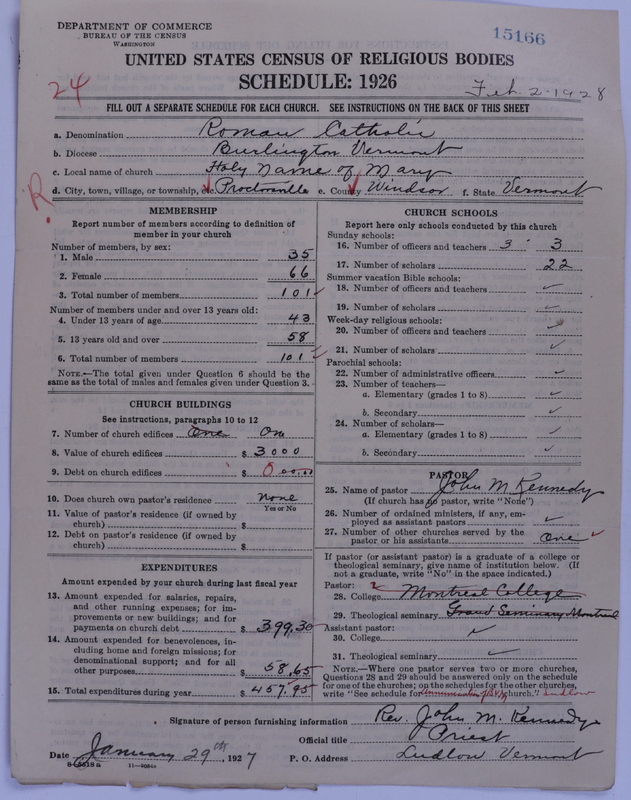 DEPARTMENT OF COMMERCE
BUREAU OF THE CENSUS
WASHINGTON
15166
UNITED STATES CENSUS OF RELIGIOUS BODIES
SCHEDULE: 1926
24
Feb. 2-1928
FILL OUT A SEPARATE SCHEDULE FOR EACH CHURCH. SEE INSTRUCTIONS ON THE BACK OF THIS SHEET
a. Denomination Roman Catholic
b. Diocese Burlington Vermont
c. Local name of church Holy Name of Mary
R.
d. City, town, village, or township, etc. Proctorsville e. County Windsor f. State Vermont
MEMBERSHIP
Report number of members according to definition of member in your church
Number of members, by sex:
1. Male 35
2. Female 66
3. Total number of members 101
Number of members under and over 13 years old:
4. Under 13 years of age 43
5. 13 years old and over 58
6. Total number of members 101
NOTE.—The total given under Question 6 should be
same as the total of males and females given under Question 3.
CHURCH BUILDINGS
See instructions, paragraphs 10 to 12
7. Number of church edifices One One
8. Value of church edifices $ 3000
9. Debt on church edifices $ 000.00
10. Does church own pastor's residence None
Yes or No
11. Value of pastor's residence (if owned by
church) $
12. Debt on pastor's residence (if owned by
church) $
EXPENDITURES
Amount expended by your church during last fiscal year
13. Amount expended for salaries, repairs,
and other running expenses; for im-
provements or new buildings; and for
payments on church debt $ 399.30
14. Amount expended for benevolences, in-
cluding home and foreign missions; for
denominational support; and for all
other purposes $ 58.65
15. Total expenditures during year $ 457.95
CHURCH SCHOOLS
Report here only schools conducted by this church
Sunday schools:
16. Number of officers and teachers 3 3
17. Number of scholars 22
Summer vacation Bible schools:
18. Number of officers and teachers
19. Number of scholars
Week-day religious schools:
20. Number of officers and teachers
21. Number of scholars
Parochial schools:
22. Number of administrative officers
23. Number of teachers—
a. Elementary (grades 1 to 8)
b. Secondary
24. Number of scholars—
a. Elementary (grades 1 to 8)
b. Secondary
PASTOR
25. Name of pastor John M Kennedy
(If church has no pastor, write "None")
26. Number of ordained ministers, if any, em-
ployed as assistant pastors
27. Number of other churches served by the
pastor or his assistants One
If pastor (or assistant pastor) is a graduate of a college or
theological seminary, give name of institution below. (If
not a graduate, write "No" in the space indicated.)
Pastor: 2
28. College Montreal College
29. Theological seminary Grand Seminary Montreal
Assistant pastor:
30. College
31. Theological seminary
NOTE.—Where one pastor serves two or more churches,
Questions 28 and 29 should be answered only on the schedule
for one of the churches; on the schedules for the other churches,
write "See schedule for Annunciation of B.V.M church." Ludlow
Signature of person furnishing information Rev. John M. Kennedy
Official title Priest
Date January 29th, 1927 P. O. Address Ludlow Vermont
11—9084a